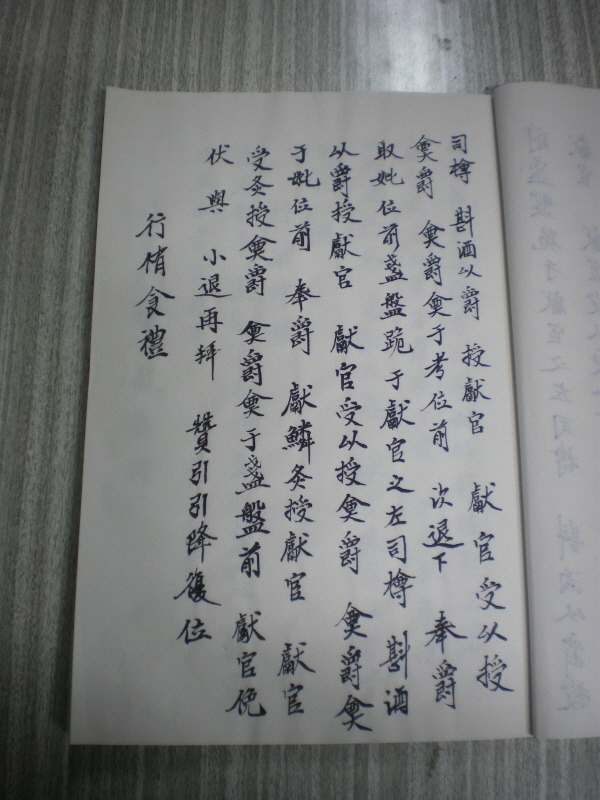 司樽 斟酒以爵 授獻官 獻官受以授
奠爵 奠爵奠于考位前 次退下 奉爵
取妣位前盞盤跪于獻官之左司樽 斟酒
以爵授獻官 獻官受以授奠爵 奠爵奠
于妣位前 奉爵 獻鱗灸授獻官 獻官
受灸授奠爵 奠爵奠于盞盤前 獻官俛
伏 興 小退再拜 贊引引降復位
行侑食禮